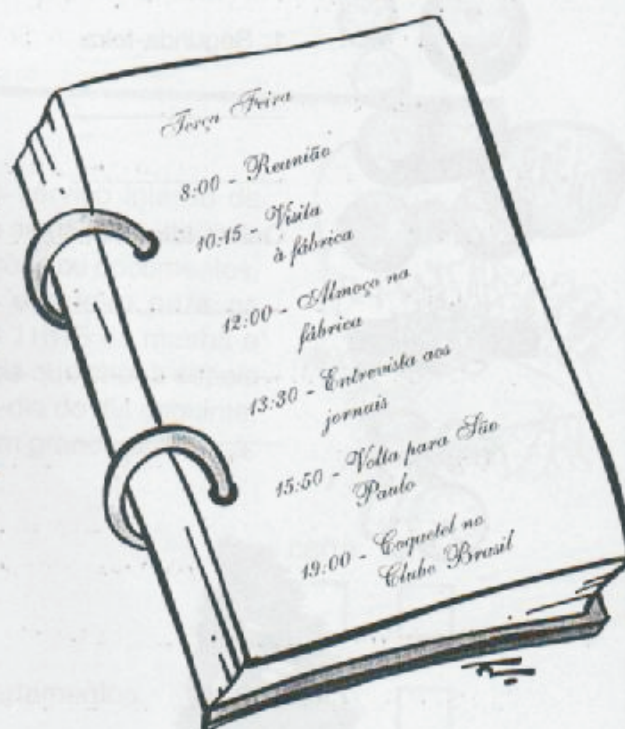 1. Segunda-feira
Terça Feira
8:00 - Reunião
10:15 - Visita
à fábrica
12:00 - Almoço na
fábrica
13:30 - Entrevista aos
jornais
15:50 - Volta para São
Paulo
19:00 - Coquetel no
Clube Brasil